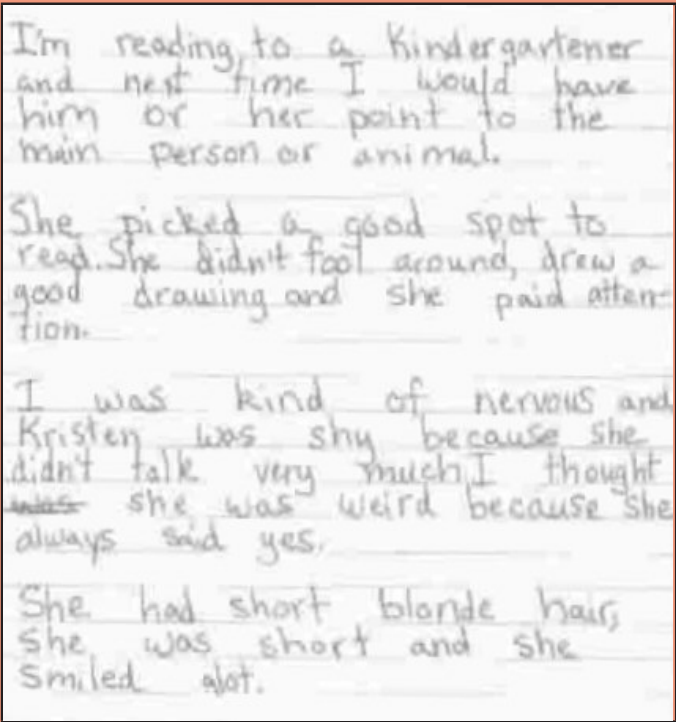 I'm reading to a Kindergartener
and next time I would have
him or her point to the
main person or animal.
She picked a good spot to
read. She didn't fool around, drew a
good drawing and she paid atten-
tion.
I was kind of nervous and
Kristen was shy because she
didn't talk very much I thought
was she was weird because she
always said yes.
She had short blonde hair,
she was short and she
smiled alot.